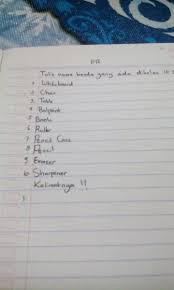 PR
Tulis nama benda yang ada dikelas
1 Whiteboard
2 Chair
3 Table
4 Ballpoint
5 Books
6 Ruller
7 Pencil Case
8 Pencil
9 Eraser
10 Sharpener
Kalimatnya !!
1